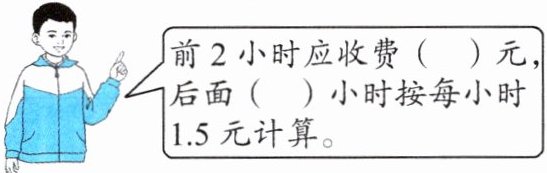 前2小时应收费（ ）元，
后面（ ）小时按每小时
1.5元计算。